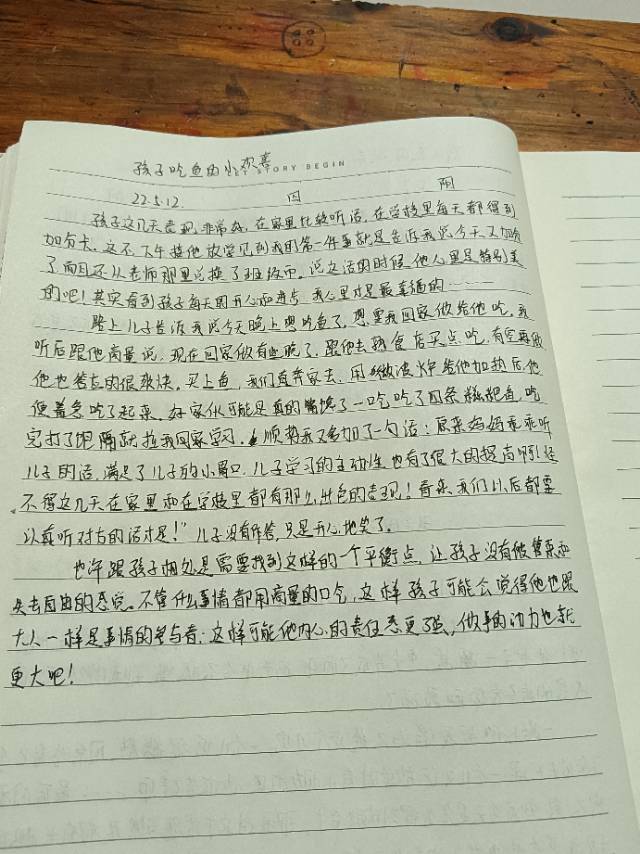 孩子吃鱼的小欢喜
STORY BEGIN
22.5.12. 四 阴
孩子这几天表现非常好,在家里比较听话,在学校里每天都得到
加分卡。这不,下午接他放学见到我的第一件事就是告诉我说今天又加分
了而且还从老师那里兑换了班级币。说这话的时候他心里是特别美
的吧!其实看到孩子每天的开心和进步我心里才是最幸福的……
路上儿子告诉我说今天晚上想吃鱼了,想要我回家做给他吃,我
听后跟他商量说,现在回家做有些晚了,跟他去熟食店买点吃,有空再做
他也答应的很爽快。买上鱼,我们直奔家去,用微波炉给他加热后,他
便着急吃了起来。好家伙可能是真的嘴馋了一吃吃了四条糍粑鱼,吃
完打了饱隔就拉我回家学习。顺势我又多加了一句话:原来妈妈乖乖听
儿子的话,满足了儿子的小胃口,儿子学习的主动性也有了很大的提高啊!怪
不得这几天在家里和在学校里都有那么出色的表现!看来我们以后都要
认真听对方的话才是!”儿子没有作答,只是开心地笑了。
也许跟孩子相处是需要找到这样的一个平衡点,让孩子没有被管束和
失去自由的感觉。不管什么事情都用商量的口气,这样孩子可能会觉得他也跟
大人一样是事情的参与者;这样可能他内心的责任感更强,做事的动力也就
更大吧!